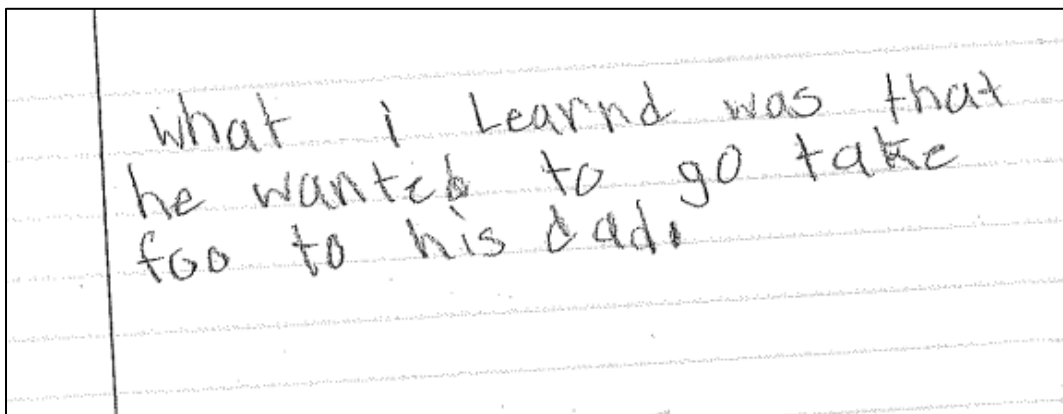 what i Learnd was that
he wanted to go take
foo to his dad.